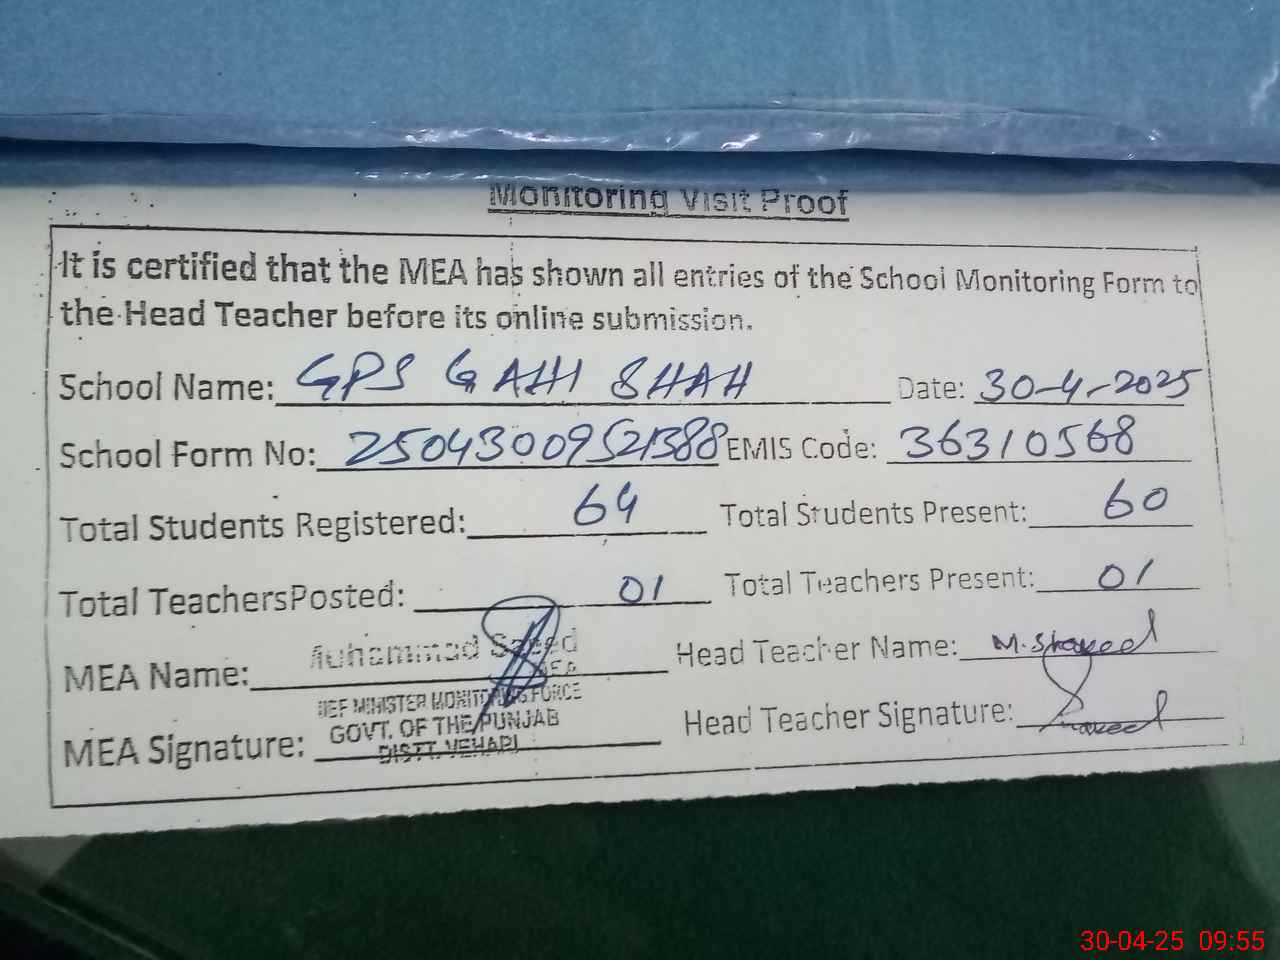 Monitoring Visit Proof
It is certified that the MEA has shown all entries of the School Monitoring Form to
the Head Teacher before its online submission.
School Name: GPS GAHI SHAH Date: 30-4-2025
School Form No: EMIS Code: 36310568
Total Students Registered: 64 Total Students Present: 60
Total TeachersPosted: 01 Total Teachers Present: 01
MEA Name: Muhammad Saeed Head Teacher Name: M.
MEA
IEF MINISTER MONITORING FORCE
MEA Signature: GOVT. OF THE PUNJAB Head Teacher Signature:
DISTT. VEHARI
30-04-25 09:55